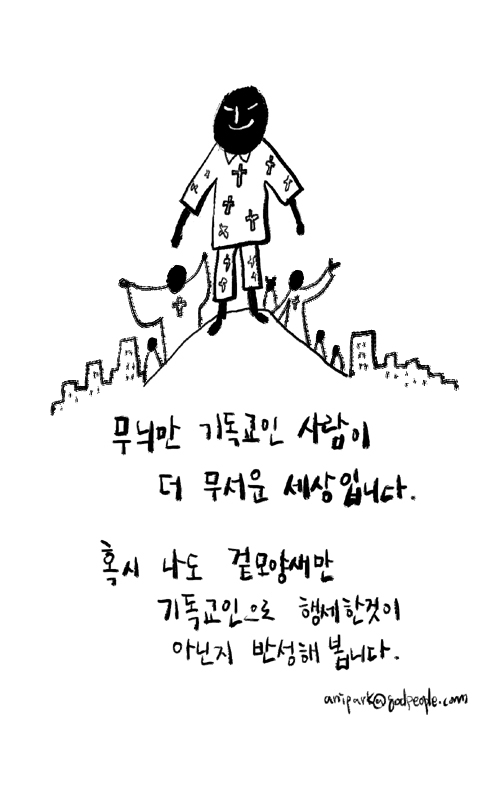 무늬만 기독교인 사람이
더 무서운 세상입니다.
혹시 나도 겉모양새만
기독교인으로 행세한것이
아닌지 반성해 봅니다.
anipark@godpeople.com